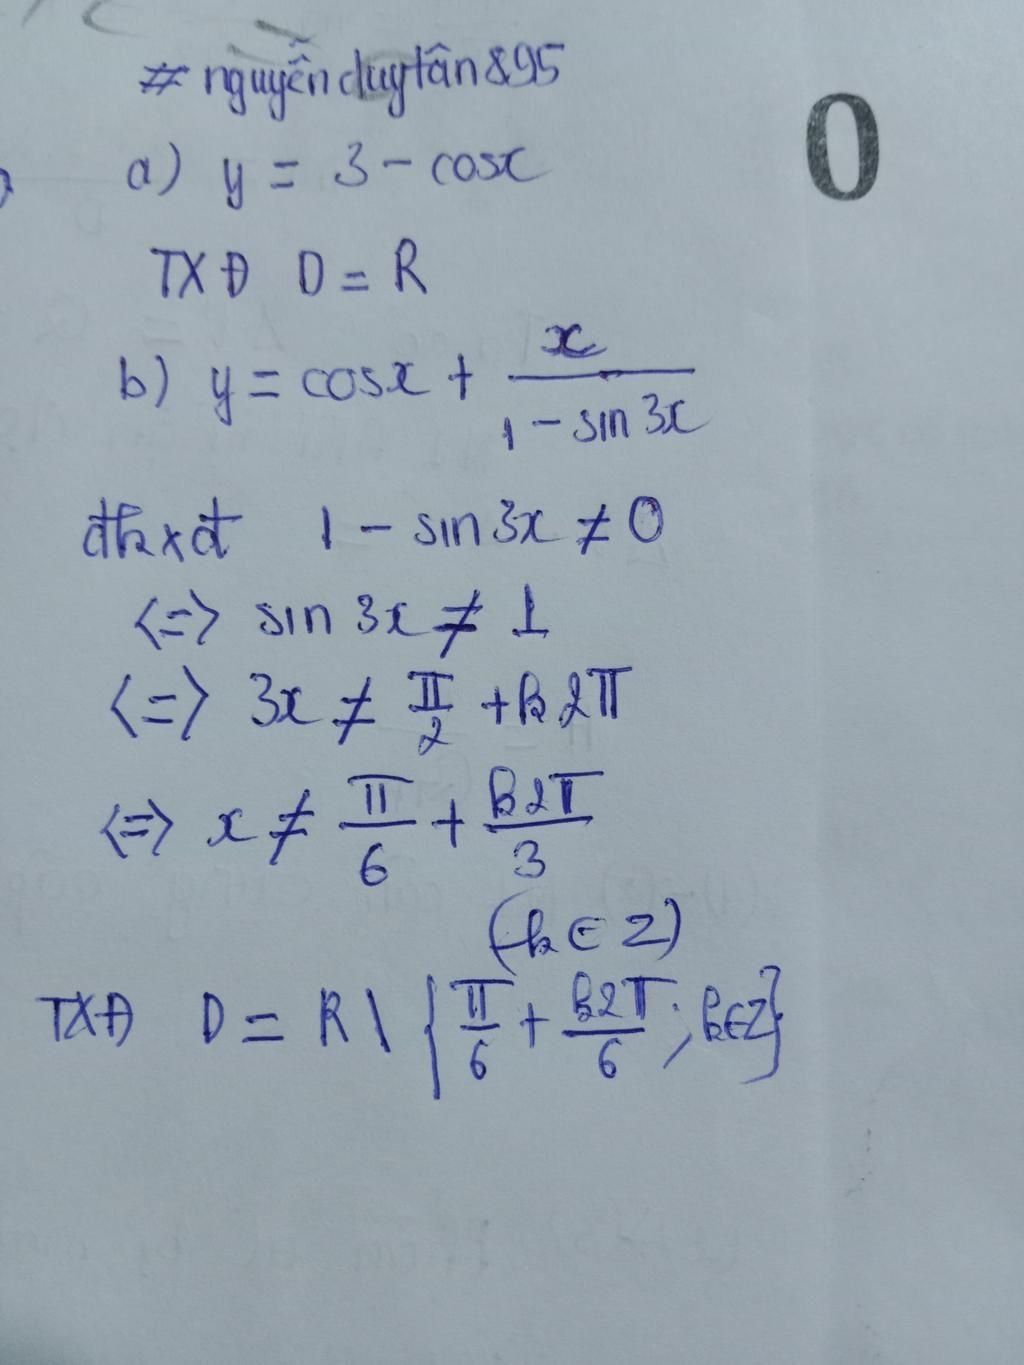 # nguyễnduytân895
0
a) y = 3 - cosx
TXĐ D = R
b) y = cosx + x / (1 - sin 3x)
đkxđ 1 - sin 3x ≠ 0
<=> sin 3x ≠ 1
<=> 3x ≠ π/2 + k2π
<=> x ≠ π/6 + k2π/3
(k ∈ Z)
TXĐ D = R \ {π/6 + k2π/6 ; k∈Z}